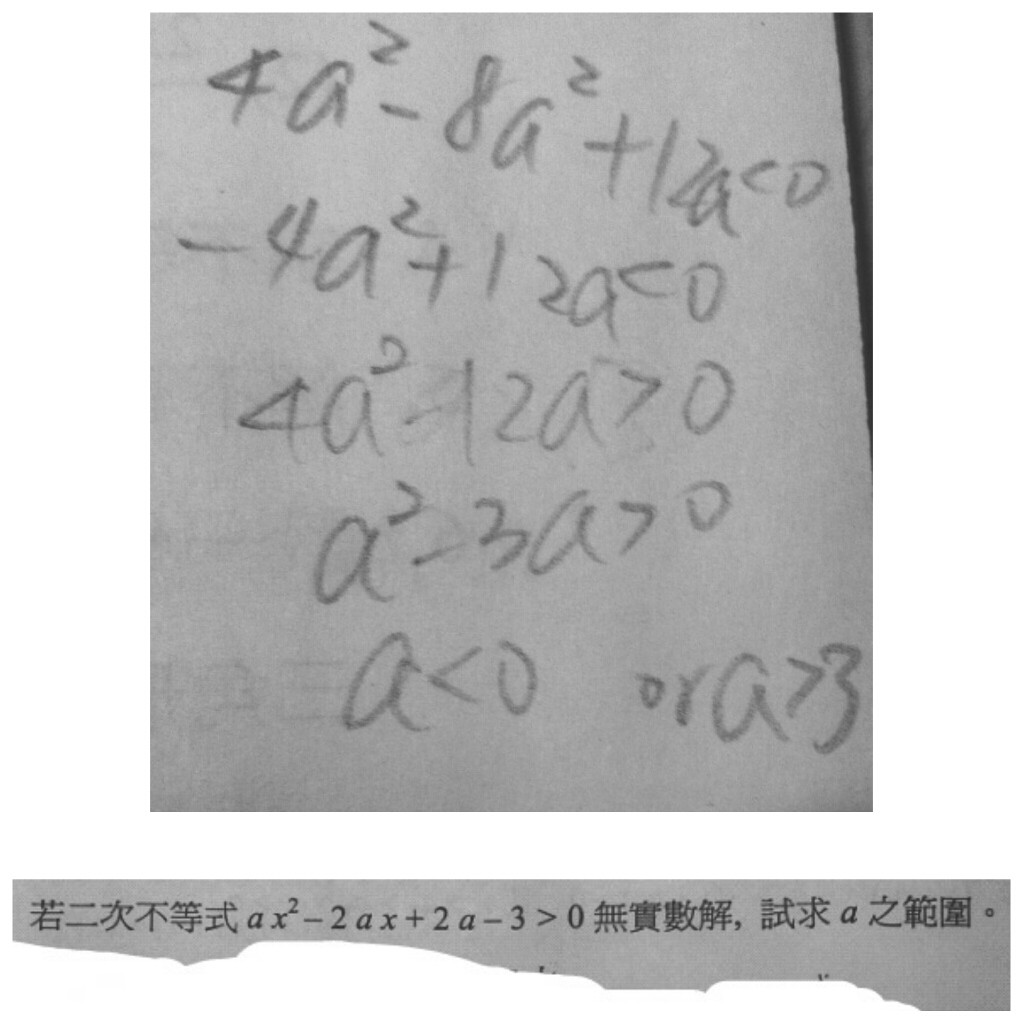 4a²-8a²+12a<0
-4a²+12a<0
4a²-12a>0
a²-3a>0
a<0 or a>3
若二次不等式 ax²-2ax+2a-3>0 無實數解, 試求 a 之範圍。